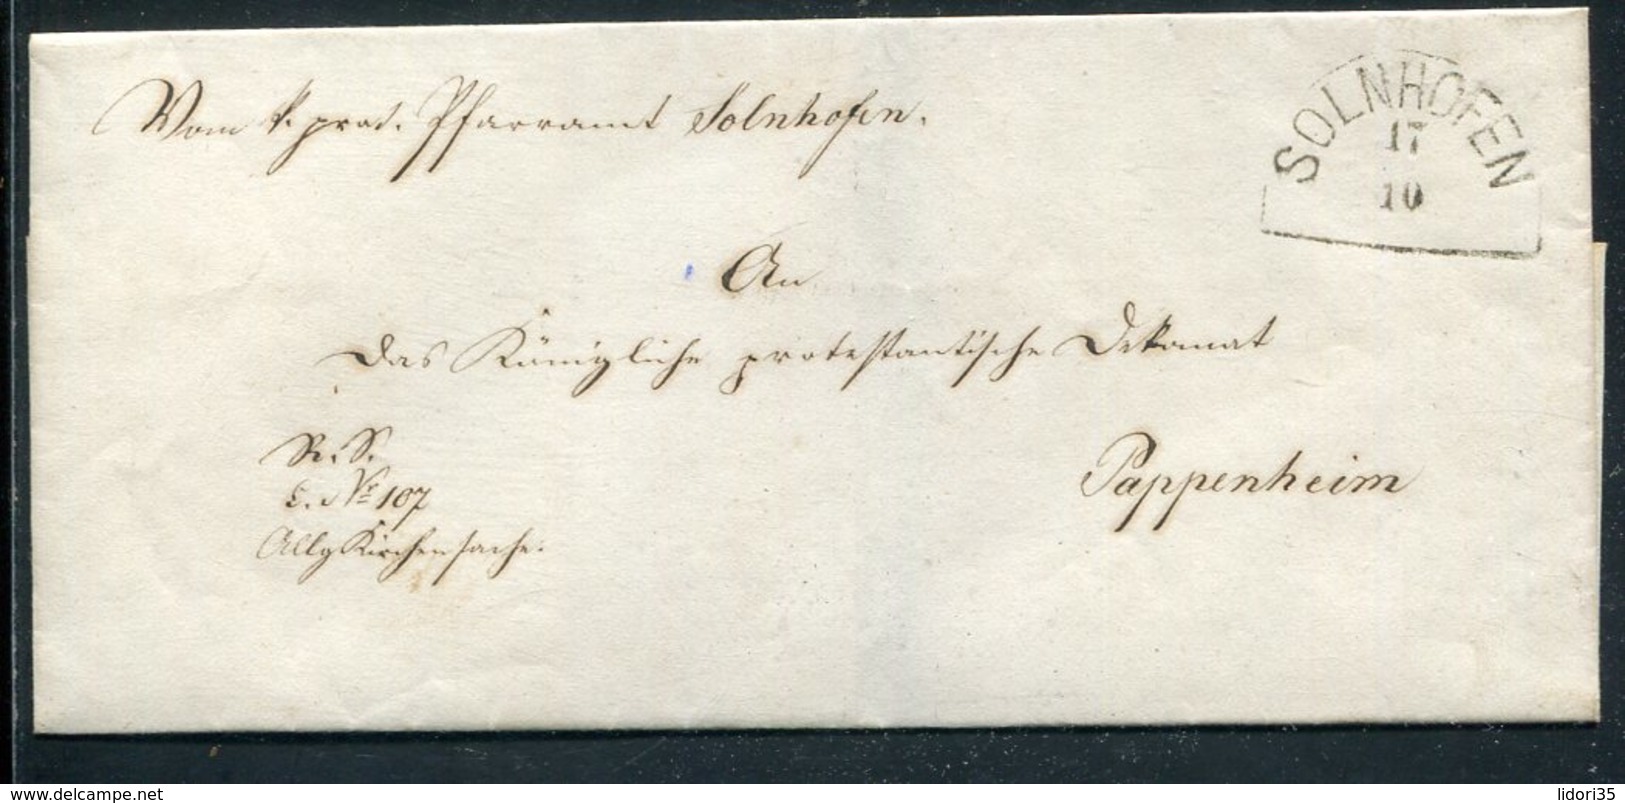 Vom k. prot. Pfarramt Solnhofen.
SOLNHOFEN
17
10
An
das Königliche protestantische Dekanat
R. S.
E. Nr 107
Allg Kirchensache.
Pappenheim
www.delcampe.net
lidori35